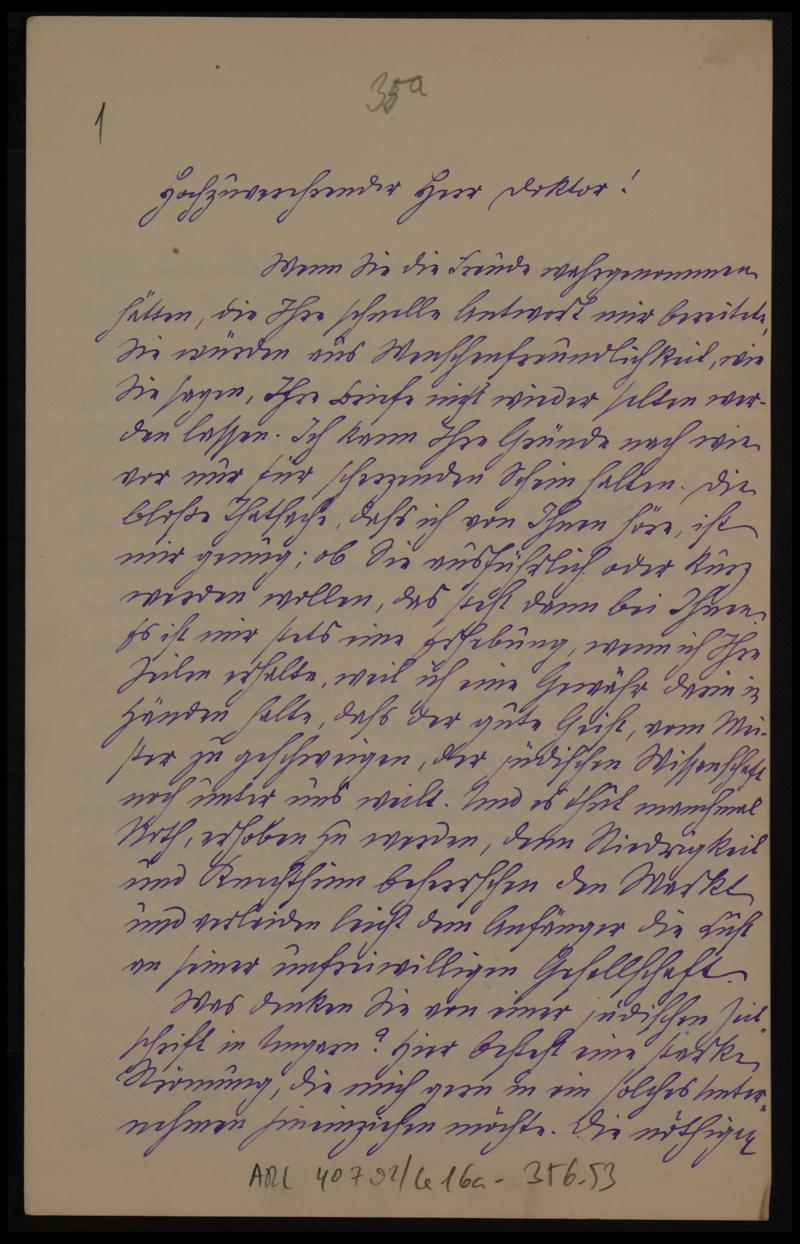 35a
1
Hochzuverehrender Herr Doktor!
Wenn Sie die Freude wahrgenommen
hätten, die Ihre schnelle Antwort mir bereitete,
Sie würden aus Menschenfreundlichkeit, wie
Sie sagen, Ihre Briefe nicht wieder selten wer-
den lassen. Ich kann Ihre Gründe nach wie
vor nur für scherzenden Schein halten. Die
bloße Thatsache, dass ich von Ihnen höre, ist
mir genug; ob Sie ausführlich oder kurz
werden wollen, das steht dann bei Ihnen.
Es ist mir stets eine Erhebung, wenn ich Ihre
Zeilen erhalte, weil ich eine Gewähr darin in
Händen halte, dass der gute Geist, vom Mei-
ster zu geschweigen, der jüdischen Wissenschaft
noch unter uns weilt. Und es thut manchmal
Noth, erhoben zu werden, denn Niedrigkeit
und Knechtsinn beherrschen den Markt
und verleiden leicht dem Anfänger die Lust
an seiner unfreiwilligen Gesellschaft.
Was denken Sie von einer jüdischen Zeit-
schrift in Ungarn? Hier besteht eine starke
Strömung, die mich gern in ein solches Unter-
nehmen hineinziehen möchte. Die nöthigen